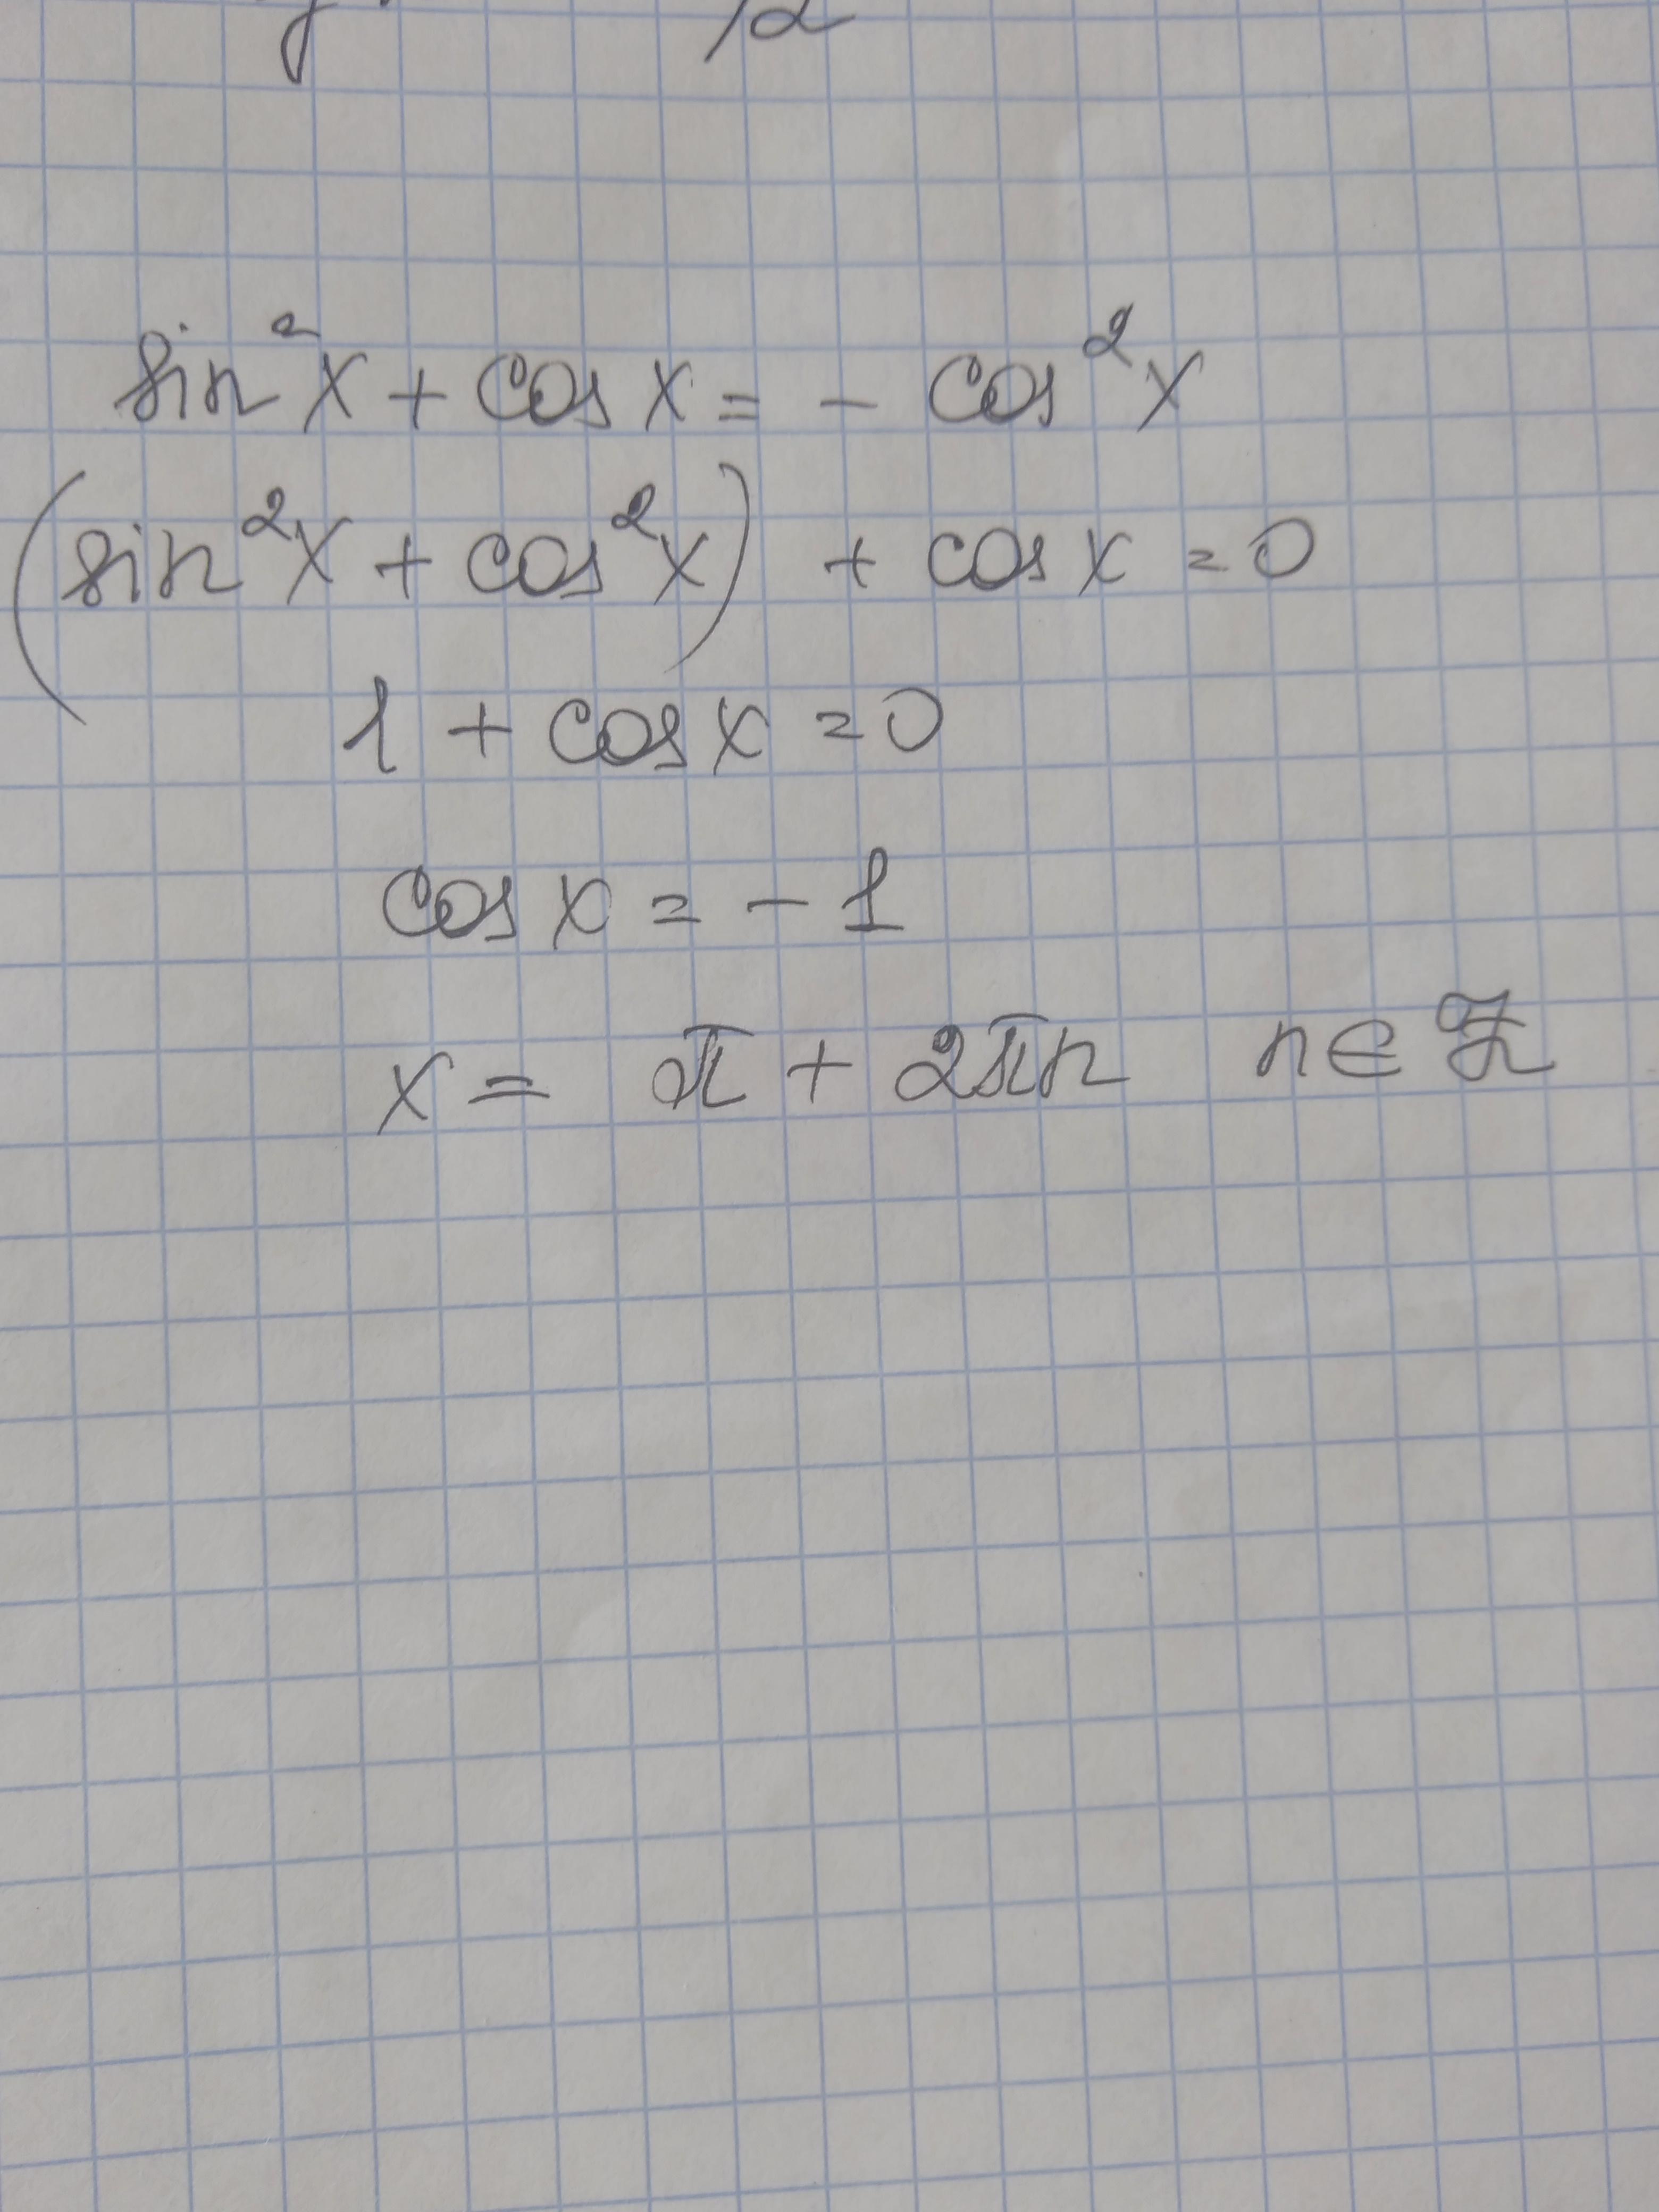 sin²x + cos x = - cos²x
(sin²x + cos²x) + cos x = 0
1 + cos x = 0
cos x = - 1
x = π + 2πn n ∈ Z